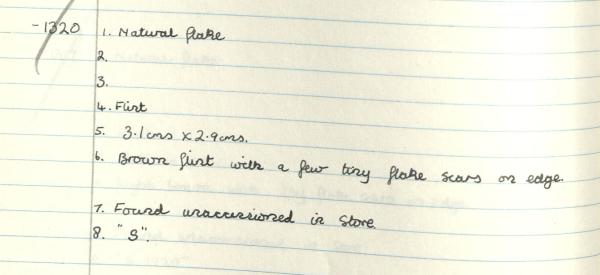 -1320 1. Natural flake
2.
3.
4. Flint
5. 3.1cms x 2.9cms.
6. Brown flint with a few tiny flake scars on edge.
7. Found unaccessioned in Store.
8. "S".